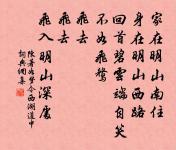 家在明山南住
身在明山西路
回首碧雲端自笑
不如飛鶩
飛去
飛去
飛入明山深處
陳著如夢令西湖道中
詞典網集